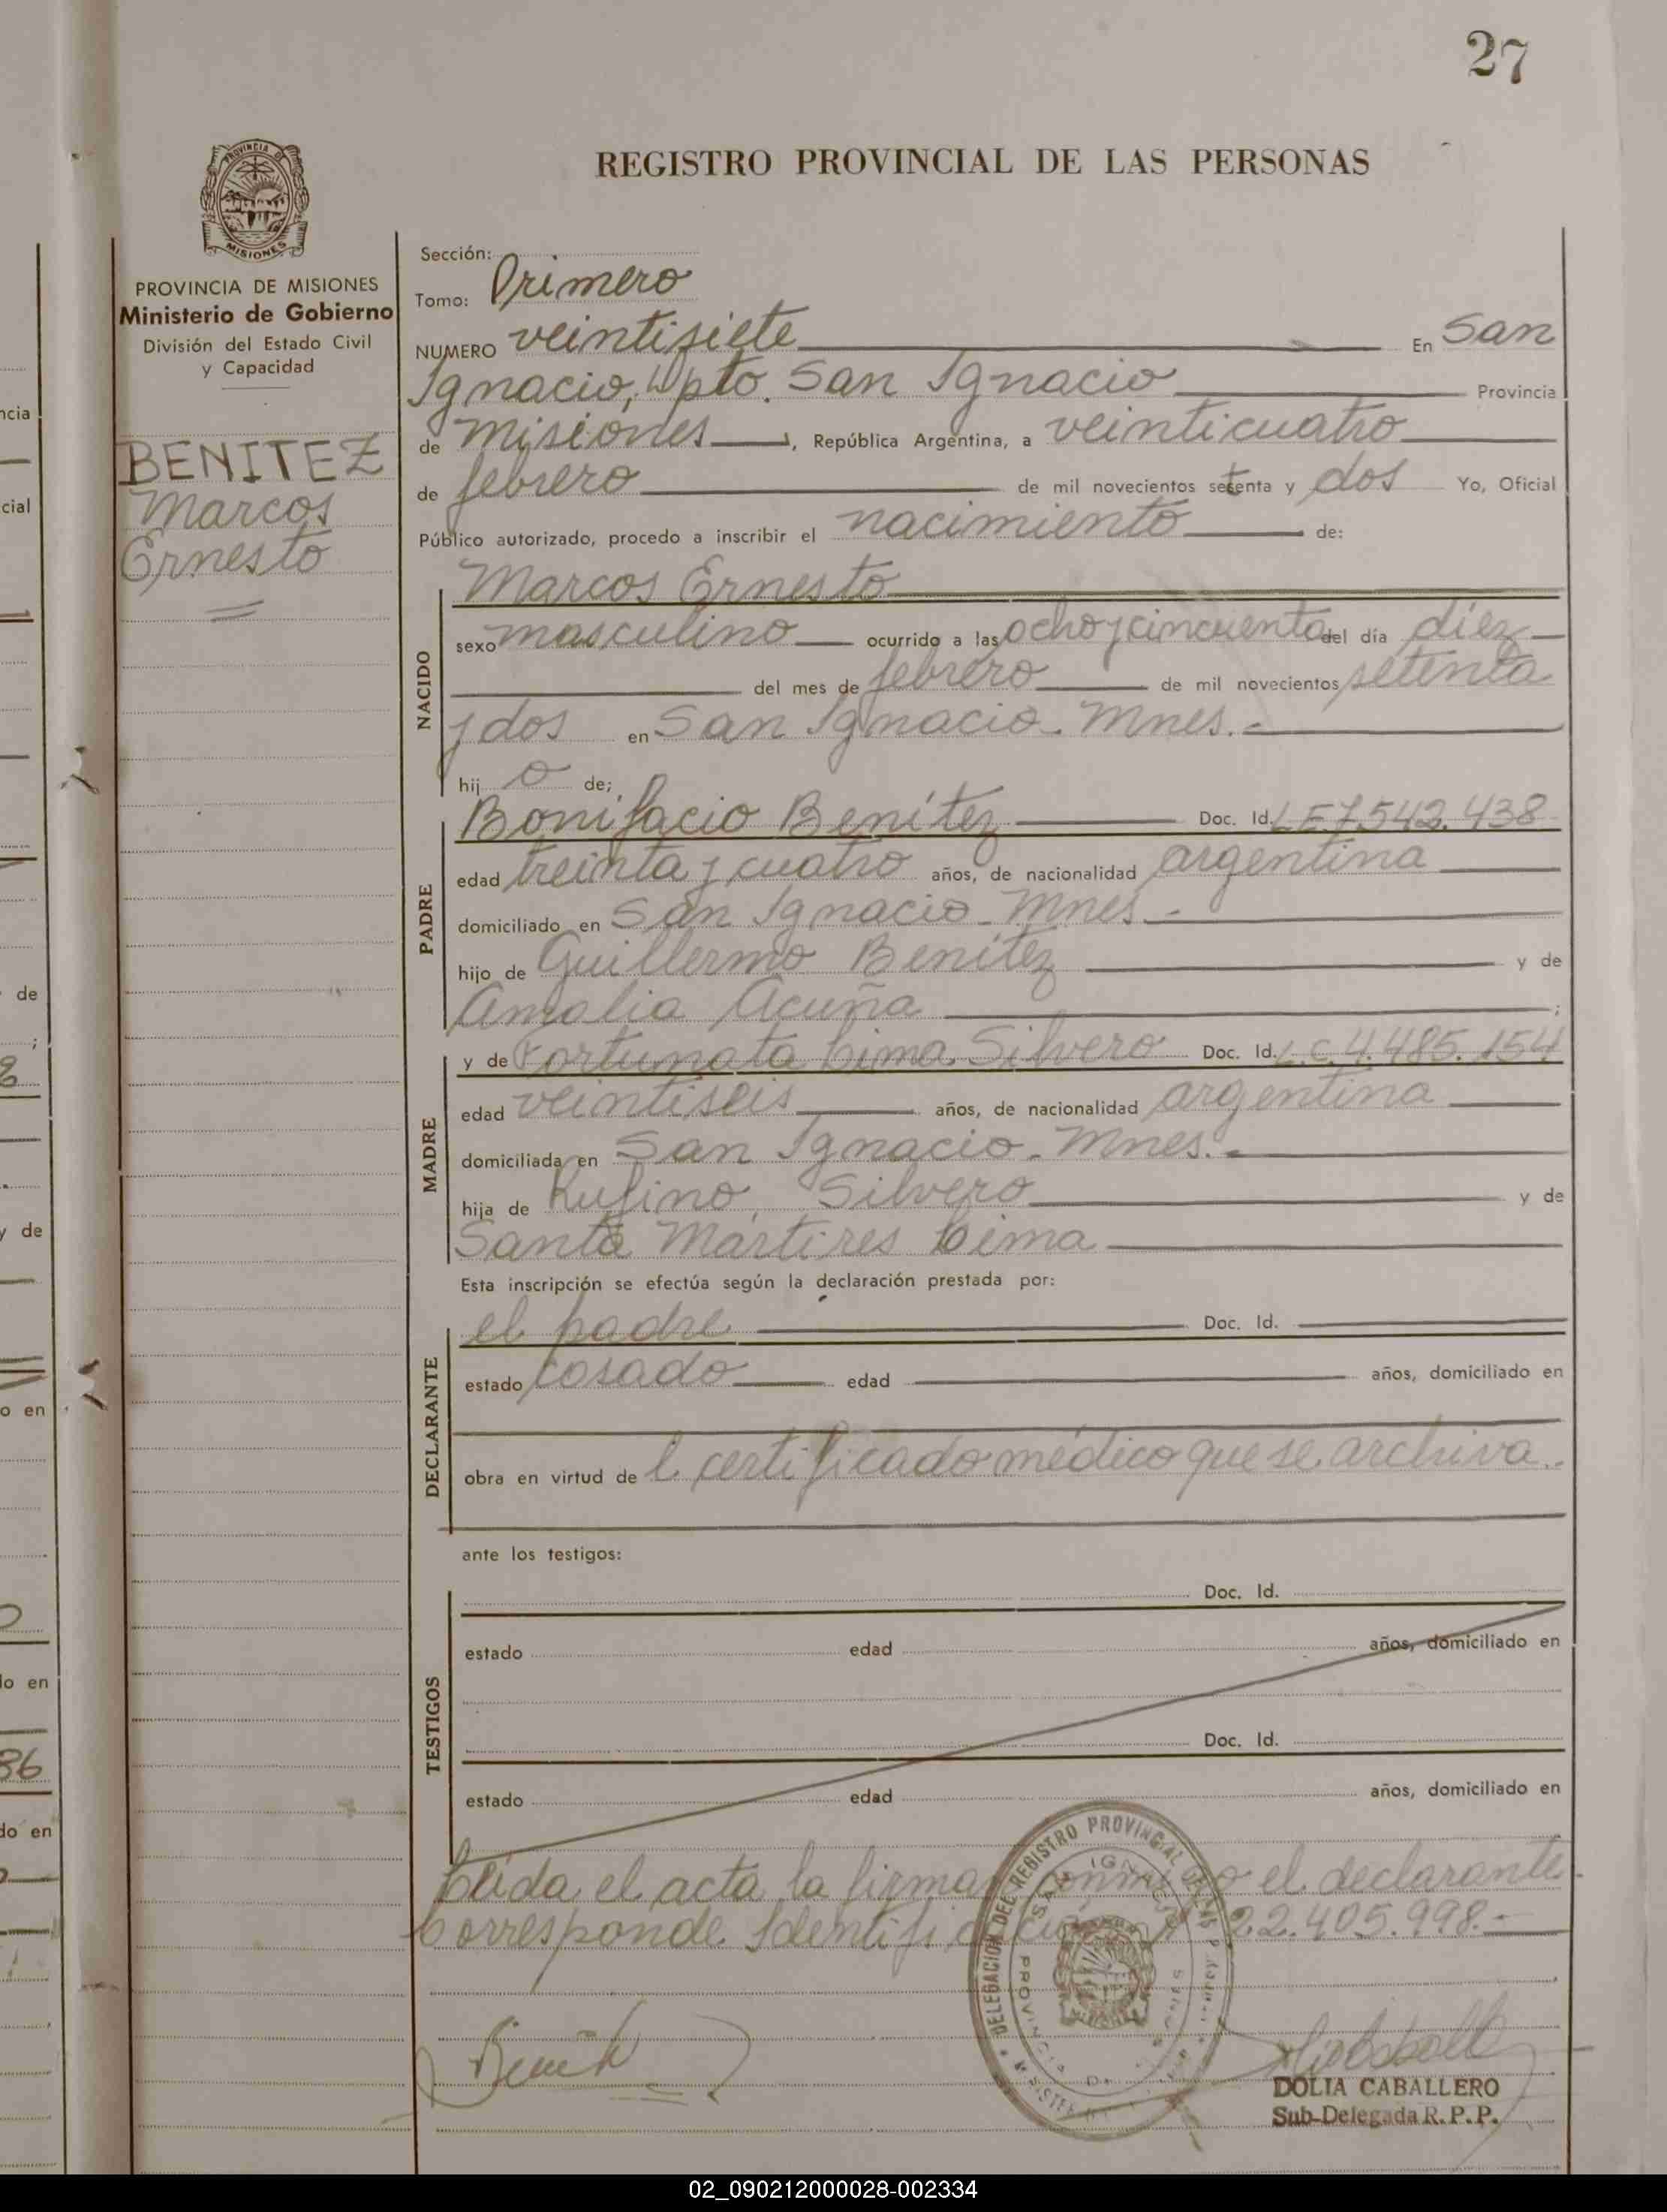 27
REGISTRO PROVINCIAL DE LAS PERSONAS
PROVINCIA DE
MISIONES
PROVINCIA DE MISIONES
Ministerio de Gobierno
División del Estado Civil
y Capacidad
BENITEZ
Marcos
Ernesto
Sección:
Tomo: Primero
NUMERO veintisiete En San
Ignacio, Dpto. San Ignacio Provincia
de Misiones, República Argentina, a veinticuatro
de febrero de mil novecientos setenta y dos Yo, Oficial
Público autorizado, procedo a inscribir el nacimiento de:
NACIDO
Marcos Ernesto
sexo masculino ocurrido a las ocho y cincuenta del día diez
del mes de febrero de mil novecientos setenta
y dos en San Ignacio. Mnes.-
hij o de;
PADRE
Bonifacio Benítez Doc. Id. L E 7.542.438
edad treinta y cuatro años, de nacionalidad argentina
domiciliado en San Ignacio - Mnes.-
hijo de Guillermo Benítez y de
Amalia Acuña ;
MADRE
y de Fortunata Lima Silvero Doc. Id. L.C. 4.485.154
edad veintiseis años, de nacionalidad argentina
domiciliada en San Ignacio - Mnes.-
hija de Rufino Silvero y de
Santa Mártires Lima
Esta inscripción se efectúa según la declaración prestada por:
DECLARANTE
el padre Doc. Id.
estado casado edad años, domiciliado en
obra en virtud de l certificado médico que se archiva.-
ante los testigos:
TESTIGOS
Doc. Id.
estado edad años, domiciliado en
Doc. Id.
estado edad años, domiciliado en
Leida el acta la firma conmigo el declarante.
Corresponde Identificación 22.405.998.-
DELEGACION DEL REGISTRO PROVINCIAL DE LAS
SAN IGNACIO
PROVINCIA DE
DOLIA CABALLERO
Sub-Delegada R.P.P.
ncia
cial
de
;
8
y de
o en
o en
86
do en
02_090212000028-002334